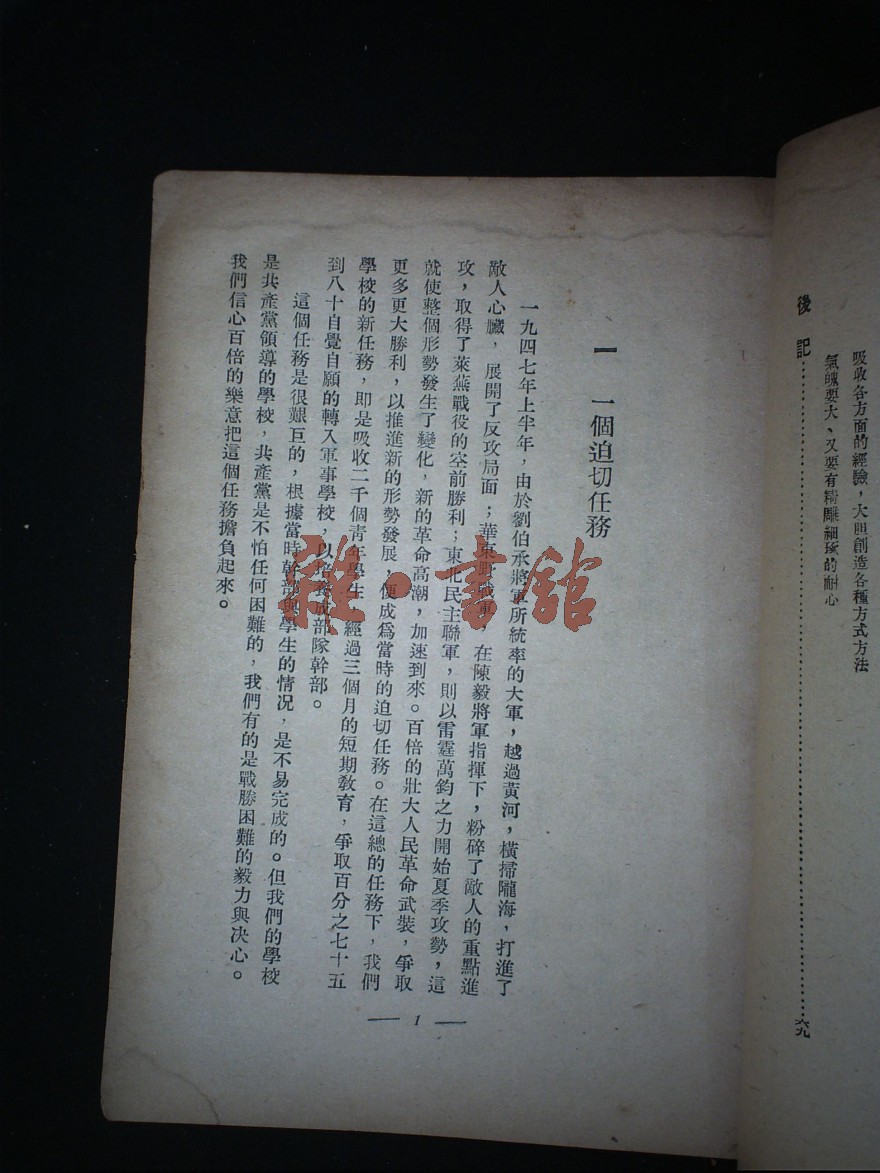 吸收各方面的經驗，大胆創造各種方式方法
氣魄要大、又要有精雕細琢的耐心
後記……………………………究
一　一個迫切任務
一九四七年上半年，由於劉伯承將軍所統率的大軍，越過黃河，橫掃隴海，打進了
敵人心臟，展開了反攻局面；華東野戰軍，在陳毅將軍指揮下，粉碎了敵人的重點進
攻，取得了萊蕪戰役的空前勝利；東北民主聯軍，則以雷霆萬鈞之力開始夏季攻勢，這
就使整個形勢發生了變化，新的革命高潮，加速到來。百倍的壯大人民革命武裝，爭取
更多更大勝利，以推進新的形勢發展，便成爲當時的迫切任務。在這總的任務下，我們
學校的新任務，即是吸收二千個青年學生，經過三個月的短期教育，爭取百分之七十五
到八十自覺自願的轉入軍事學校，以培養成部隊幹部。
這個任務是很艱巨的，根據當時幹部與學生的情況，是不易完成的。但我們的學校
是共產黨領導的學校，共產黨是不怕任何困難的，我們有的是戰勝困難的毅力與決心。
我們信心百倍的樂意把這個任務擔負起來。
— 1 —
雜·書館